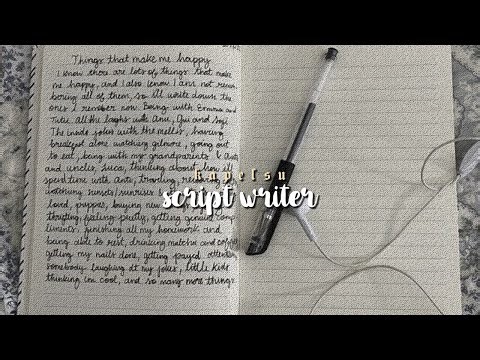 Things that make me happy
I know there are lots of things that make
me happy, and I also know I am not remem
bering all of them, so ill write down the
ones I remember now. Being with Emma and
Tutu. All the laughs with Anu, Gui and
The inside jokes with the melles, having
breakfast alone watching gilmore, going out
to eat, being with my grandparents &
and uncles, Juca, thinking about how ill
spend time with
watching sunsets/sunrises
loved, puppies, buying new
thrifting, feeling pretty, getting genuine comp
liments, finishing all my homework and
being able to rest, drinking matcha and
getting my nails done, getting payed attention,
somebody laughing at my jokes, little kids
thinking im cool, and so many more things
kapetsu
script writer